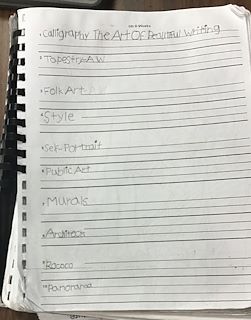 1. Calligraphy The Art Of Beautiful Writing
2. Tapestry A.W
3. Folk Art
4. Style
5. Self-Portrait
6. Public Art
7. Murals
8. Architect
9. Rococo
10. Panorama